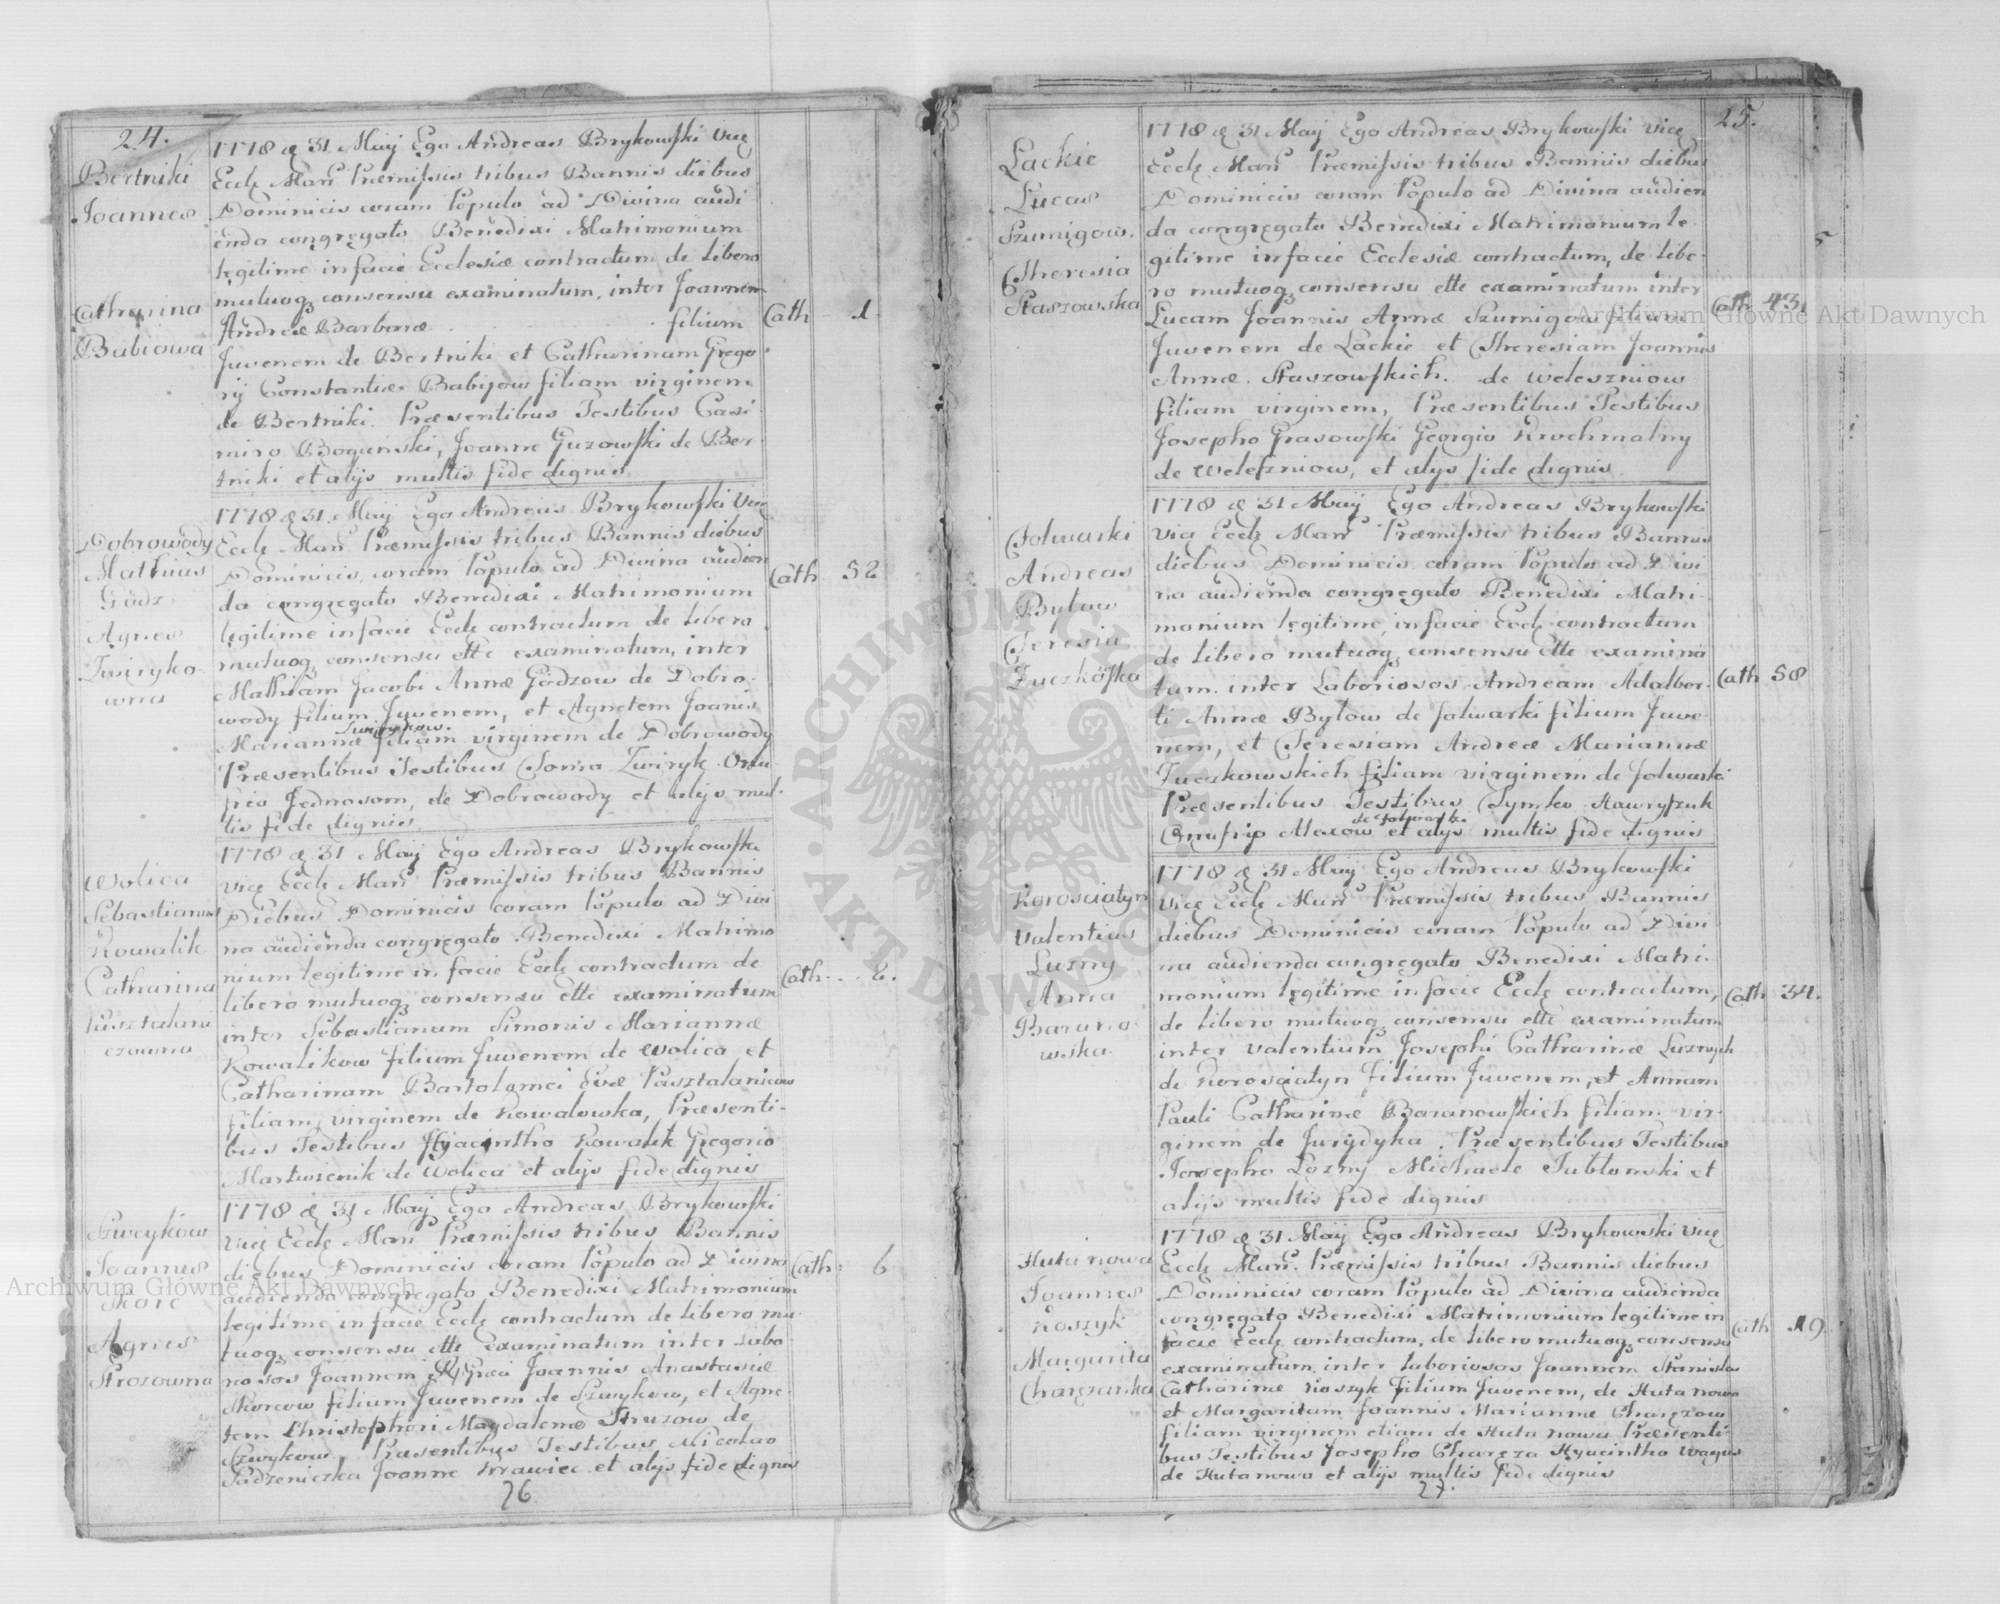 24.
Bertniki
Joannes
Catharina
Babiowa
1778 d 31 Maij Ego Andreas Brykowski Vice
Eccle Mon Præmissis tribus Bannis diebus
Dominicis coram Populo ad Divina audi
enda congregato Benedixi Matrimonium
legitime in facie Ecclesiæ contractum de libero
mutuoq consensu examinatum, inter Joannem
Andreæ Barbaræ filium
Juvenem de Bertniki et Catharinam Grego
rij Constantiæ Babijow filiam virginem
de Bertniki. Præsentibus Testibus Casi
miro Bogunski, Joanne Guzowski de Ber
tniki et alijs multis fide dignis
Cath 1.
Dobrowody
Mathias
Godz
Agnes
Zwiryko
wna
1778 d 31 Maij Ego Andreas Brykowski Vice
Eccle Mon Præmissis tribus Bannis diebus
Dominicis coram Populo ad Divina audien
da congregato Benedixi Matrimonium
legitime in facie Eccle contractum de libero
mutuoq consensu ette examinatum, inter
Mathiam Jacobi Annæ Godzow de Dobro
wody filium Juvenem, et Agnetem Joanis
Zwirykow.
Mariannæ filiam virginem de Dobrowody
Præsentibus Testibus Thoma Zwiryk Onu
frio Jednosom, de Dobrowody et alijs mul
tis fide dignis
Cath 52
Wolica
Sebastianus
Kowalik
Catharina
Pasztalani
czowna
1778 d 31 Maij Ego Andreas Brykowski
Vice Eccle Mon Præmissis tribus Bannis
Diebus Dominicis coram Populo ad Divi
na audienda congregato Benedixi Matrimo
nium legitime in facie Eccle contractum de
libero mutuoq consensu ette examinatum
inter Sebastianum Simonis Mariannæ
Kowalikow filium Juvenem de Wolica et
Catharinam Bartolomei Evæ Pasztalanicow
filiam virginem de Kowalowka, Præsenti
bus Testibus Hyacintho Kowalik Gregorio
Martwienik de Wolica et alijs fide dignis
Cath 2.
Szweykow
Joannes
Skorc
Agnes
Strozowna
1778 d 31 Maij Ego Andreas Brykowski
Vice Eccle Mon Præmissis tribus Bannis
diebus Dominicis coram Populo ad Divina
audienda congregato Benedixi Matrimonium
legitime in facie Eccle contractum de libero mu
tuoq consensu ette Examinatum inter Labo
riosos Joannem Joannis Anastasiæ
Skorcow filium Juvenem de Szwykow, et Agne
tem Christophori Magdalenæ Struzow de
Szwykow, Præsentibus Testibus Nicolao
Sadzeniczka Joanne Krawiec et alijs fide dignis
Cath: 6
26
25.
Lackie
Lucas
Szumigow.
Theresia
Staszowska
1778 d 31 Maij Ego Andreas Brykowski Vice
Eccle Mon Præmissis tribus Bannis diebus
Dominicis coram Populo ad Divina audien
da congregato Benedixi Matrimonium le
gitime in facie Ecclesiæ contractum, de libe
ro mutuoq consensu ette examinatum inter
Lucam Joannis Annæ Szumigow filium
Juvenem de Lackie et Theresiam Joannis
Annæ Staszowskich. de Weleszniow
filiam virginem, Præsentibus Testibus
Josepho Grasowski Georgio Krochmalny
de Weleszniow, et alijs fide dignis
Cath 43
Folwarki
Andreas
Bylow
Teresia
Zuczkoska
1778 d 31 Maij Ego Andreas Brykowski
Vice Eccle Mon Præmissis tribus Bannis
diebus Dominicis coram Populo ad Divi
na audienda congregato Benedixi Matri
monium legitime, in facie Eccle contractum
de libero mutuoq consensu ette examina
tum inter Laboriosos Andream Adalber
ti Annæ Bylow de folwarki filium Juve
nem, et Teresiam Andreæ Mariannæ
Zuczkowskich filiam virginem de folwarki
Præsentibus Testibus Symko Hawryszuk
de folwarki
Onufrio Alexow et alijs multis fide dignis
Cath 58
Korosciatyn
Valentius
Luzny
Anna
Barano
wska
1778 d 31 Maij Ego Andreas Brykowski
Vice Eccle Mon Præmissis tribus Bannis
diebus Dominicis coram Populo ad Divi
na audienda congregato Benedixi Matri
monium legitime in facie Eccle contractum,
de libero mutuoq consensu ette examinatum
inter Valentium Josephi Catharinæ Luznych
de Korosciatyn filium Juvenem, et Annam
Pauli Catharinæ Baranowskich filiam vir
ginem de Jurydyka. Præsentibus Testibus
Josepho Lozny Michaele Jublomski et
alijs multis fide dignis
Cath 34.
Huta nowa
Joannes
Koszyk
Margarita
Charęzanka
1778 d 31 Maij Ego Andreas Brykowski Vice
Eccle Mon. Præmissis tribus Bannis diebus
Dominicis coram Populo ad Divina audienda
congregato Benedixi Matrimonium legitime in
facie Eccle contractum, de libero mutuoq consensu
examinatum inter laboriosos Joannem Stanislai
Catharinæ Koszyk filium Juvenem, de Huta nowa
et Margaritam Joannis Mariannæ Charęzow
filiam virginem etiam de Huta nowa Præsenti
bus Testibus Josepho Charęza Hyacintho Wagus
de Huta nowa et alijs multis fide dignis
Cath 19.
27.
Archiwum Główne Akt Dawnych
Archiwum Główne Akt Dawnych
ARCHIWUM GŁÓWNE AKT DAWNYCH